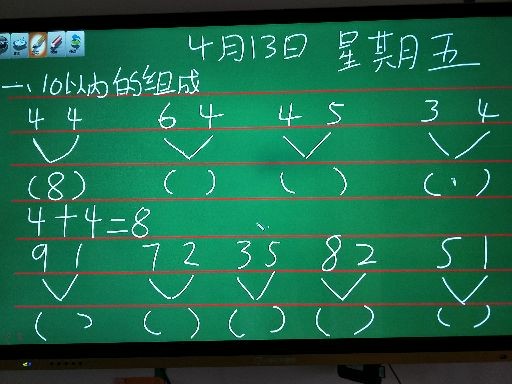 4月13日 星期五
一、10以内的组成
4 4 6 4 4 5 3 4
(8) ( ) ( ) ( )
4+4=8
9 1 7 2 3 5 8 2 5 1
( ) ( ) ( ) ( ) ( )